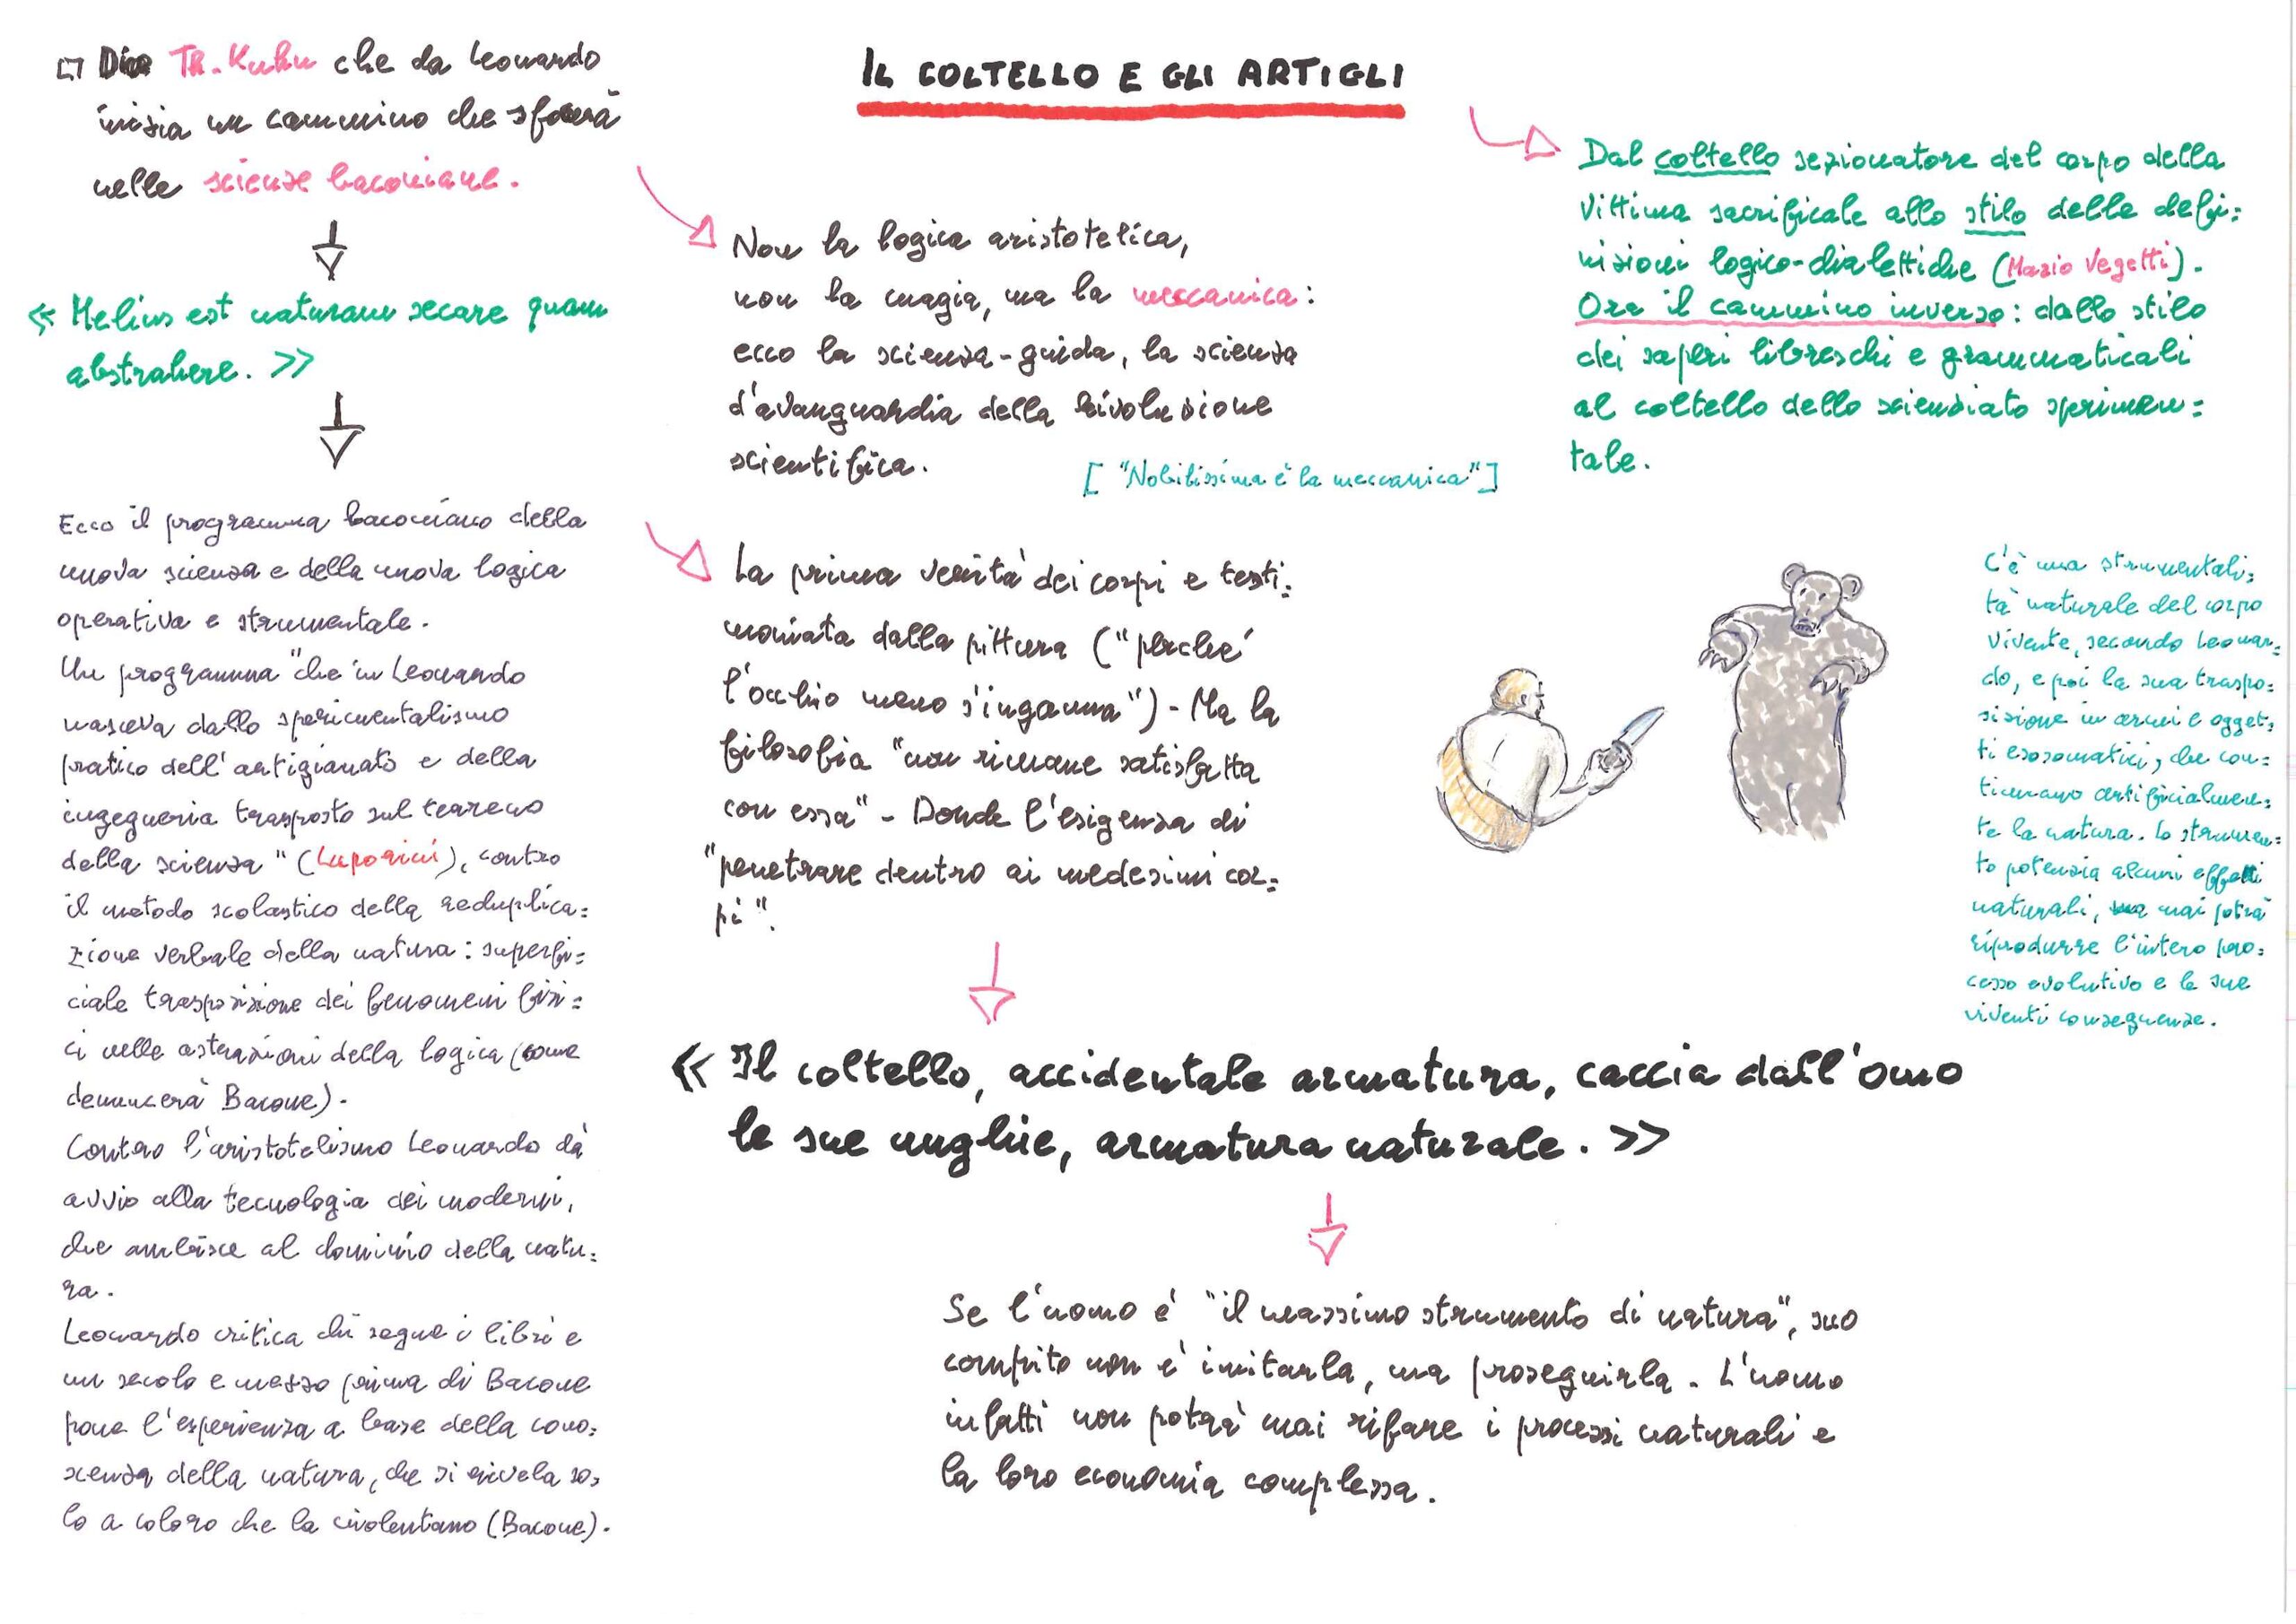 IL COLTELLO E GLI ARTIGLI
□ Dice Th. Kuhn che da Leonardo
inizia un cammino che sfocerà
nelle scienze baconiane.
« Melius est naturam secare quam
abstrahere. »
Ecco il programma baconiano della
nuova scienza e della nuova logica
operativa e strumentale.
Un programma "che in Leonardo
nasceva dallo sperimentalismo
pratico dell'artigianato e della
ingegneria trasposto sul terreno
della scienza" (Luporini), contro
il metodo scolastico della reduplica=
zione verbale della natura: superfi=
ciale trasposizione dei fenomeni fisi=
ci nelle astrazioni della logica (come
denuncerà Bacone).
Contro l'aristotelismo Leonardo dà
avvio alla tecnologia dei moderni,
che ambisce al dominio della natu=
ra.
Leonardo critica chi segue i libri e
un secolo e mezzo prima di Bacone
pone l'esperienza a base della cono=
scenza della natura, che si rivela so=
lo a coloro che la violentano (Bacone).
Non la logica aristotelica,
non la magia, ma la meccanica:
ecco la scienza-guida, la scienza
d'avanguardia della rivoluzione
scientifica.
["Nobilissima è la meccanica"]
La prima verità dei corpi e testi=
moniata dalla pittura ("perché
l'occhio meno s'inganna") - Ma la
filosofia "non rimane satisfatta
con essa" - Donde l'esigenza di
"penetrare dentro ai medesimi cor=
pi".
« Il coltello, accidentale armatura, caccia dall'omo
le sue unghie, armatura naturale. »
Se l'uomo è "il massimo strumento di natura", suo
compito non è imitarla, ma proseguirla. L'uomo
infatti non potrà mai rifare i processi naturali e
la loro economia complessa.
Dal coltello sezionatore del corpo della
vittima sacrificale allo stilo delle defi=
nizioni logico-dialettiche (Mario Vegetti).
Ora il cammino inverso: dallo stilo
dei saperi libreschi e grammaticali
al coltello dello scienziato sperimen=
tale.
C'è una strumentali=
tà naturale del corpo
vivente, secondo Leonar=
do, e poi la sua traspo=
sizione in armi e ogget=
ti esosomatici, che con=
tinuano artificialmen=
te la natura. Lo strumen=
to potenzia alcuni effetti
naturali, ma mai potrà
riprodurre l'intero pro=
cesso evolutivo e le sue
viventi conseguenze.